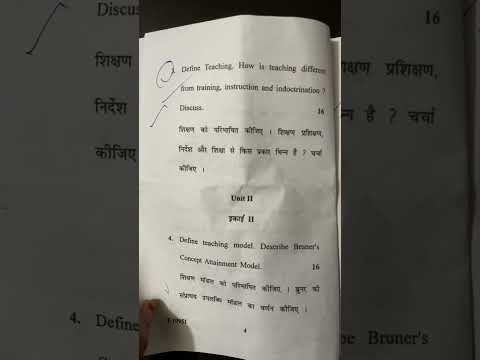 3. Define Teaching. How is teaching different
from training, instruction and indoctrination ?
Discuss.
16
शिक्षण को परिभाषित कीजिए । शिक्षण प्रशिक्षण,
निर्देश और शिक्षा से किस प्रकार भिन्न है ? चर्चा
कीजिए ।
Unit II
इकाई II
4. Define teaching model. Describe Bruner's
Concept Attainment Model. 16
शिक्षण मॉडल को परिभाषित कीजिए । ब्रूनर के
संप्रत्यय उपलब्धि मॉडल का वर्णन कीजिए ।
4
Discuss.
16
शिक्षण
प्रशिक्षण,
निर्देश
न है ? चर्चा
कीजिए
4. Define
be Bruner's